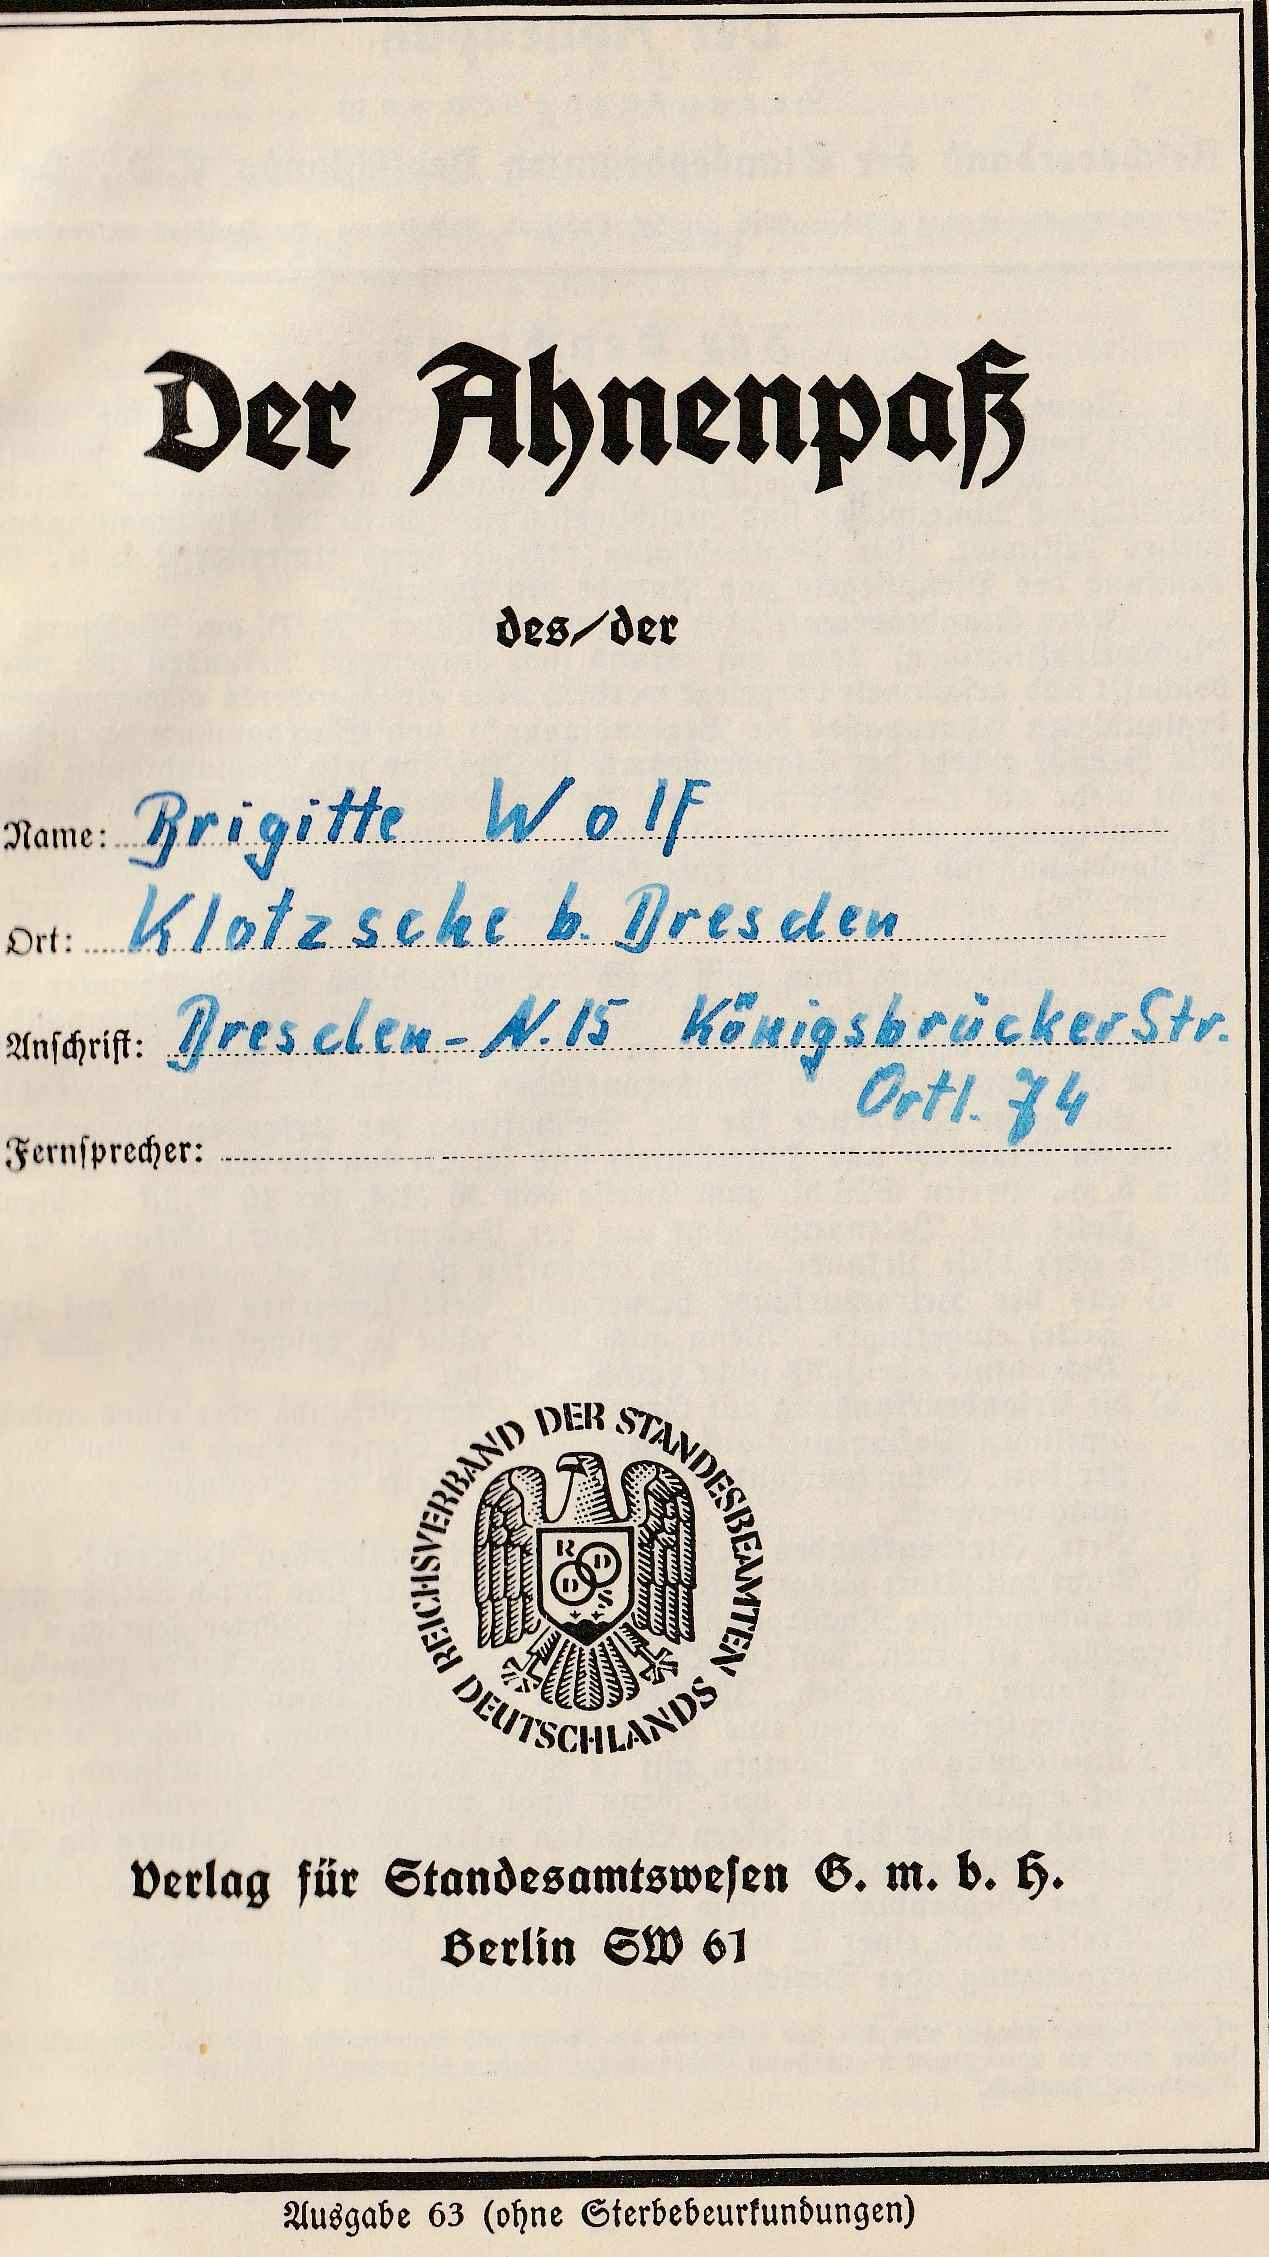 Der Ahnenpaß
des/der
Name: Brigitte Wolf
Ort: Klotzsche b. Dresden
Anschrift: Dresden-N. 15 Königsbrücker Str.
Ortl. 74
Fernsprecher:
REICHSVERBAND DER STANDESBEAMTEN DEUTSCHLANDS
R D
D S
Verlag für Standesamtswesen G. m. b. H.
Berlin SW 61
Ausgabe 63 (ohne Sterbebeurkundungen)